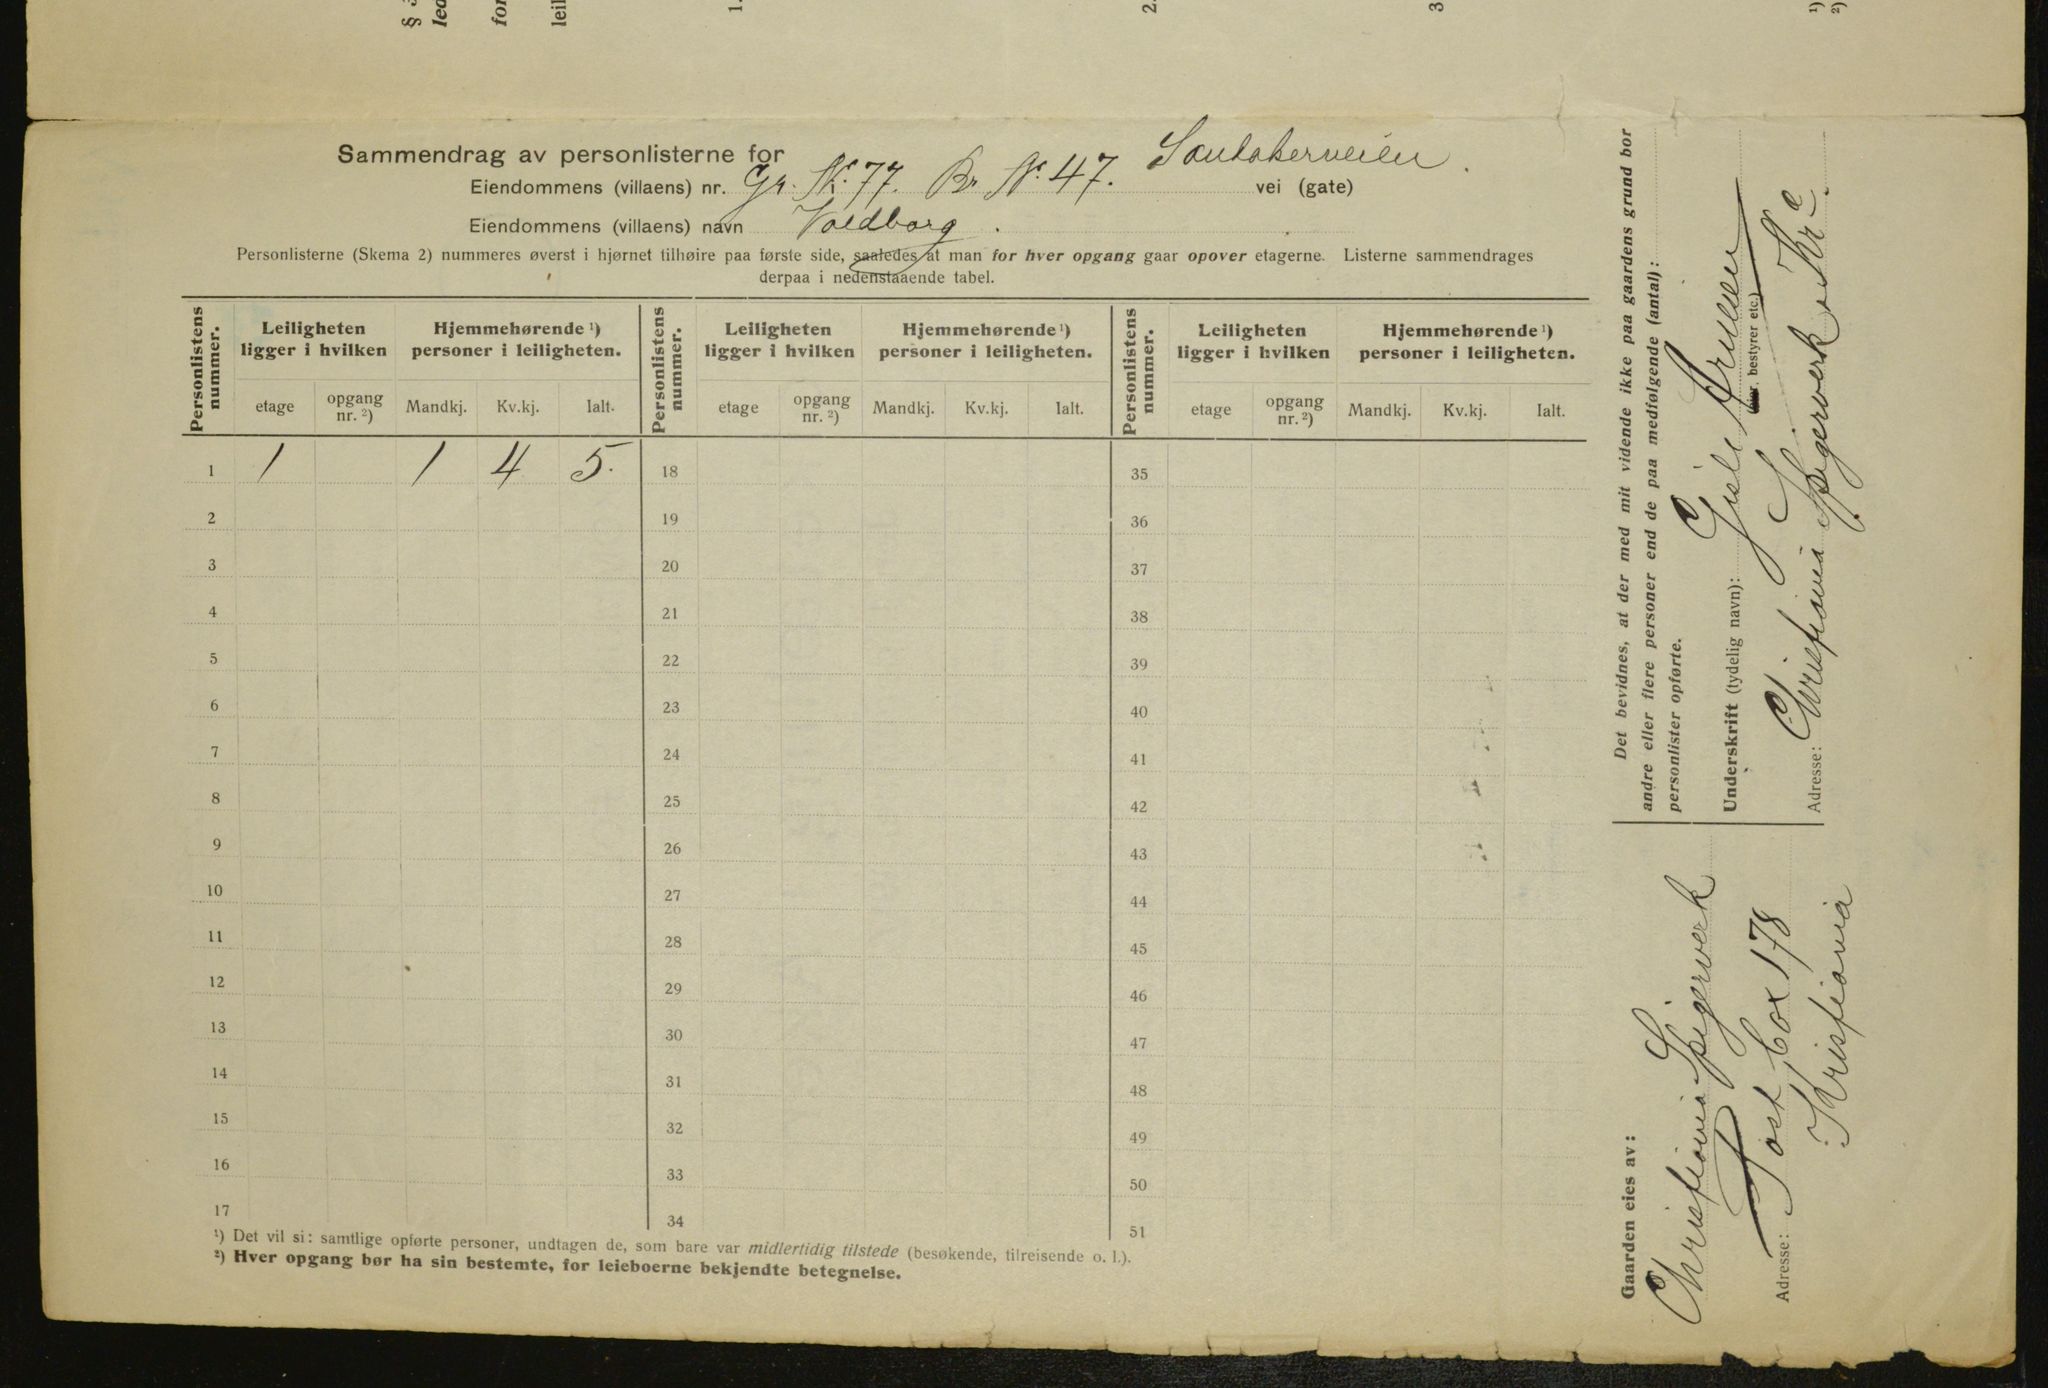 §
led
for
leil
1.
2.
3
¹)
²)
Sammendrag av personlisterne for
Eiendommens (villaens) nr. Gr. Nr. 77. Br. Nr. 47. Sandakerveien. vei (gate)
Eiendommens (villaens) navn Voldborg.
Personlisterne (Skema 2) nummeres øverst i hjørnet tilhøire paa første side, saaledes at man for hver opgang gaar opover etagerne. Listerne sammendrages
derpaa i nedenstaaende tabel.
Personlistens nummer. Leiligheten ligger i hvilken Hjemmehørende ¹) personer i leiligheten. Personlistens nummer. Leiligheten ligger i hvilken Hjemmehørende ¹) personer i leiligheten. Personlistens nummer. Leiligheten ligger i hvilken Hjemmehørende ¹) personer i leiligheten.
etage opgang nr. ²) Mandkj. Kv.kj. Ialt. etage opgang nr. ²) Mandkj. Kv.kj. Ialt. etage opgang nr. ²) Mandkj. Kv.kj. Ialt.
1 1 1 4 5. 18 35
2 19 36
3 20 37
4 21 38
5 22 39
6 23 40
7 24 41
8 25 42
9 26 43
10 27 44
11 28 45
12 29 46
13 30 47
14 31 48
15 32 49
16 33 50
17 34 51
¹) Det vil si: samtlige opførte personer, undtagen de, som bare var midlertidig tilstede (besøkende, tilreisende o. l.).
²) Hver opgang bør ha sin bestemte, for leieboerne bekjendte betegnelse.
Gaarden eies av:
Christiania Spigerverk
Adresse: Post box 178
Kristiania
Det bevidnes, at der med mit vidende ikke paa gaardens grund bor
andre eller flere personer end de paa medfølgende (antal):
personlister opførte.
Underskrift (tydelig navn):
(eier, bestyrer etc.)
Adresse: Christiania Spigerverk Kra.